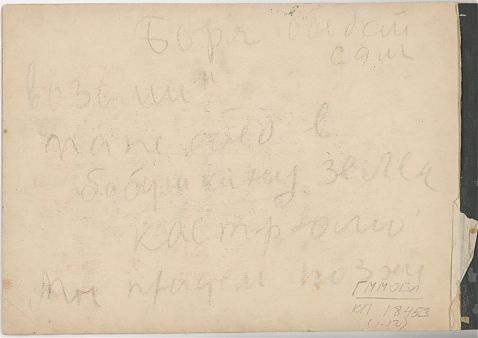 Боря обедай
сам
возьми
папе обед в
бабушкину зелен
кастрюлю
мы придём позже
ГММОБЛ
КП 18453
(1-12)